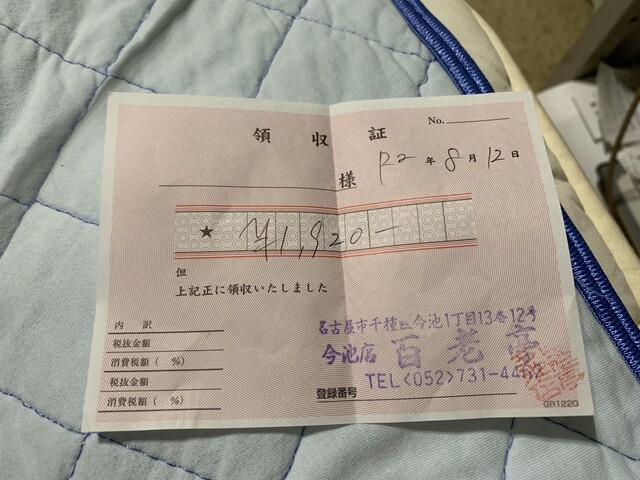 領収証
No.
様
R2年8月12日
★ ¥1,920-
但
上記正に領収いたしました
内訳
税抜金額
消費税額( %)
税抜金額
消費税額( %)
名古屋市千種区今池1丁目13番12号
今池店 百老亭
TEL<052>731-44
登録番号
GR122G